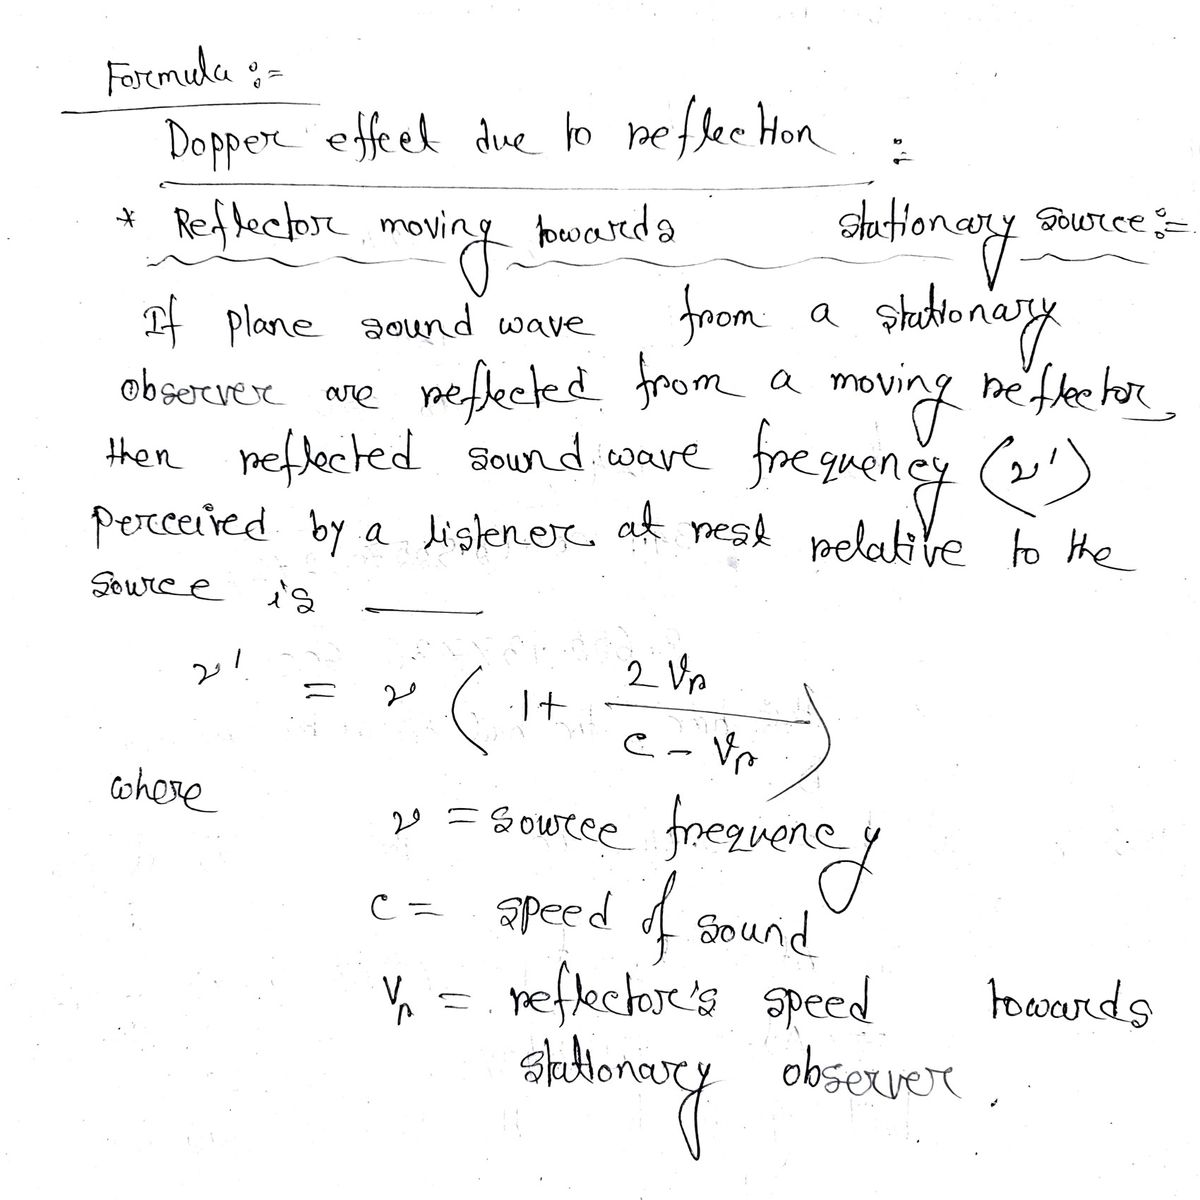 Formula :=
Dopper effect due to reflection :=
* Reflector moving towards stationary source :=
If plane sound wave from a stationary
observer are reflected from a moving reflector,
then reflected sound wave frequency (ν')
perceived by a listener at rest relative to the
source is ——
ν' = ν ( 1 + 2 Vr / c - Vr )
where
ν = source frequency
c = speed of sound
Vr = reflector's speed towards
stationary observer.